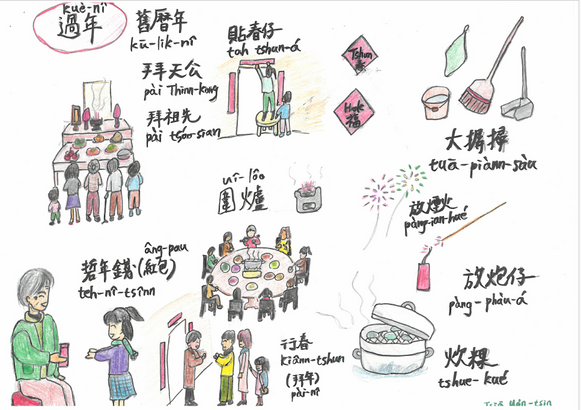 kuè-nî
過年
舊曆年
kū-li̍k-nî
拜天公
pài Thinn-kong
拜祖先
pài tsóo-sian
貼春仔
tah tshun-á
Tshun
春
Hok
福
大摒掃
tuā-piànn-sàu
uî-lôo
圍爐
放煙火
pàng-ian-hué
âng-pau
硩年錢(紅包)
teh-nî-tsînn
放炮仔
pàng-phàu-á
行春
kiânn-tshun
(拜年)
pài-nî
炊粿
tshue-kué